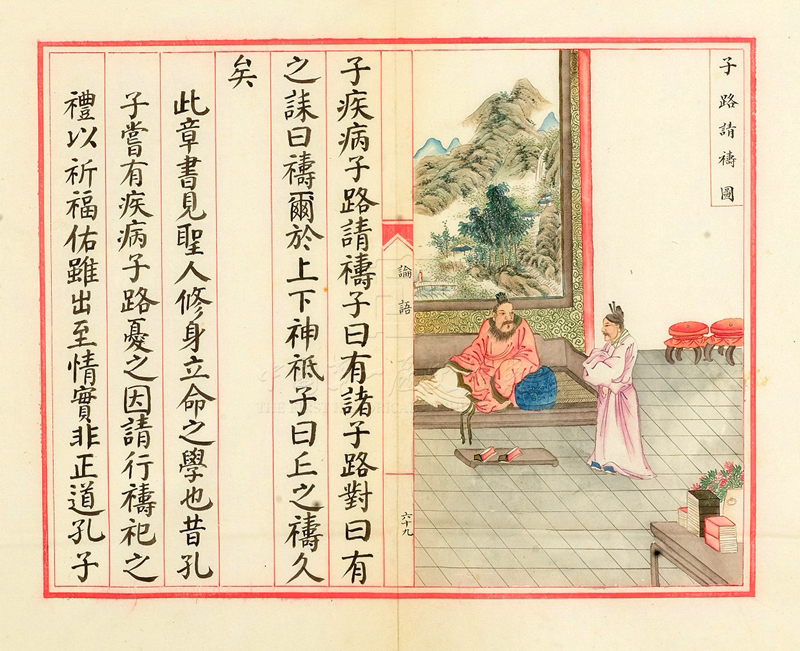 子路請禱圖
論語
六十九
子疾病子路請禱子曰有諸子路對曰有
之誄曰禱爾於上下神祗子曰丘之禱久
矣
此章書見聖人修身立命之學也昔孔
子嘗有疾病子路憂之因請行禱祀之
禮以祈福佑雖出至情實非正道孔子